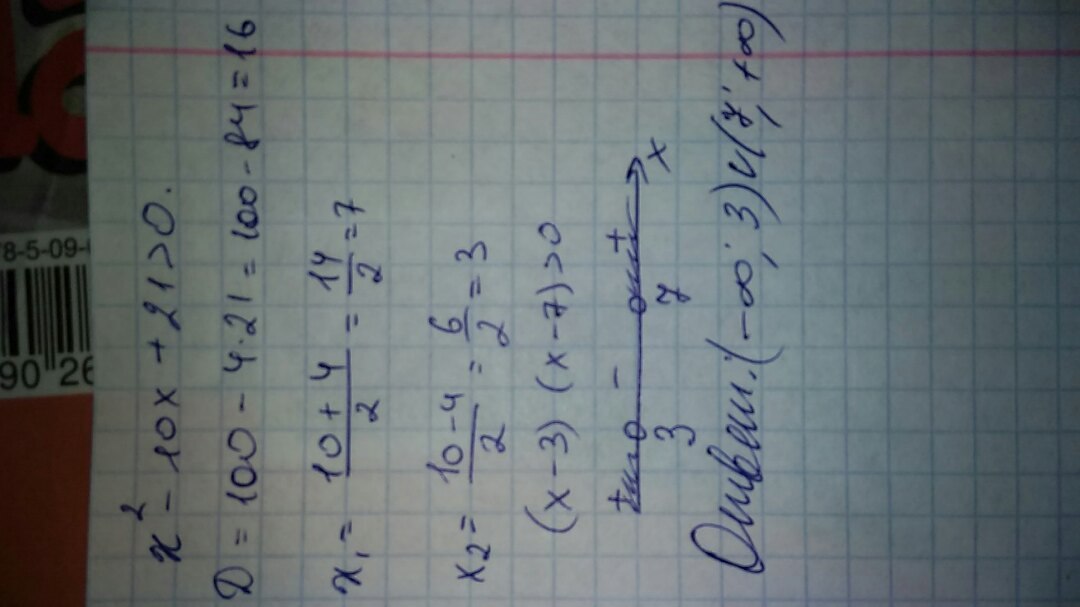 x² - 10x + 21 > 0.
D = 100 - 4·21 = 100 - 84 = 16
x₁ = (10 + 4)/2 = 14/2 = 7
x₂ = (10 - 4)/2 = 6/2 = 3
(x - 3) (x - 7) > 0
+ - +
3 7 x
Ответ: (-∞; 3) ∪ (7; +∞)
8-5-09-
90 26